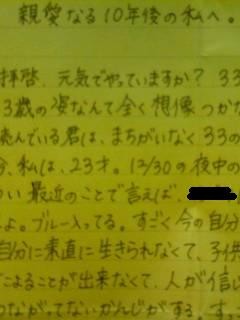 親愛なる10年後の私へ。
拝啓、元気でやっていますか？33
3歳の姿なんて全く想像つかな
読んでいる君は、まちがいなく33の
、私は、23才。12/30の夜中の
つい最近のことで言えば、
よ。ブルー入ってる。すごく今の自分
自分に素直に生きられなくて、子供
によることが出来なくて、人が信じ
つながってないかんじがする。す